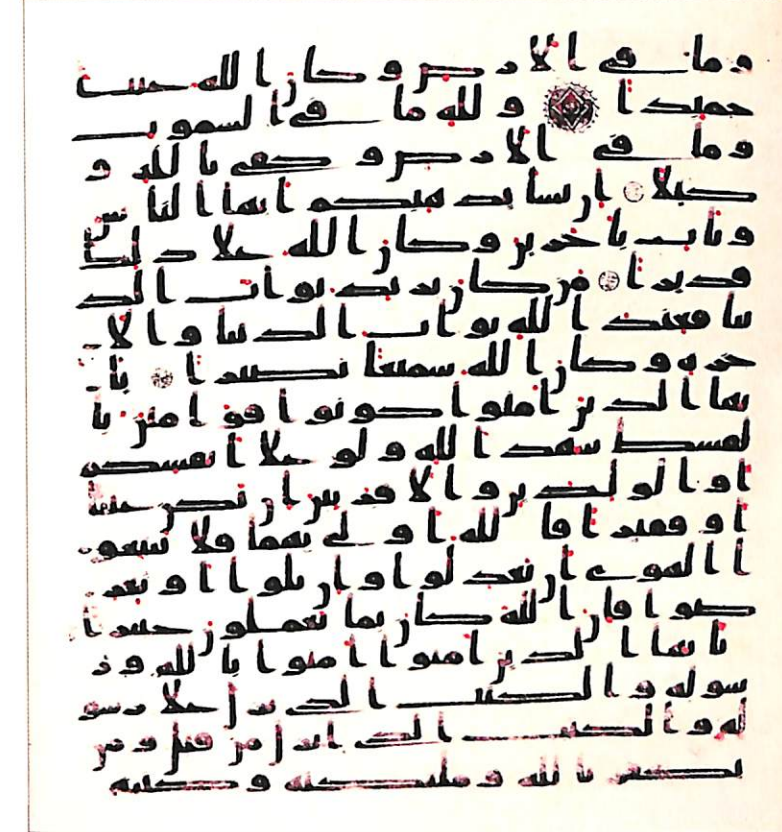 وما في الارض وكان الله غنيا
حميدا ولله ما في السموت
وما في الارض وكفى بالله و
كيلا ان يشا يذهبكم ايها الناس
ويات باخرين وكان الله على ذلك
قديرا من كان يريد ثواب الد
نيا فعند الله ثواب الدنيا والا
خره وكان الله سميعا بصيرا يا
يها الذين امنوا كونوا قومين با
لقسط شهدا لله ولو على انفسكم
او الولدين والاقربين ان يكن غنيا
او فقيرا فالله اولى بهما فلا تتبعو
ا الهوى ان تعدلوا وان تلوا او تعر
ضوا فان الله كان بما تعملون خبيرا
يايها الذين امنوا امنوا بالله ور
سوله والكتب الذي نزل على رسو
له والكتب الذي انزل من قبل ومن
يكفر بالله وملئكته وكتبه